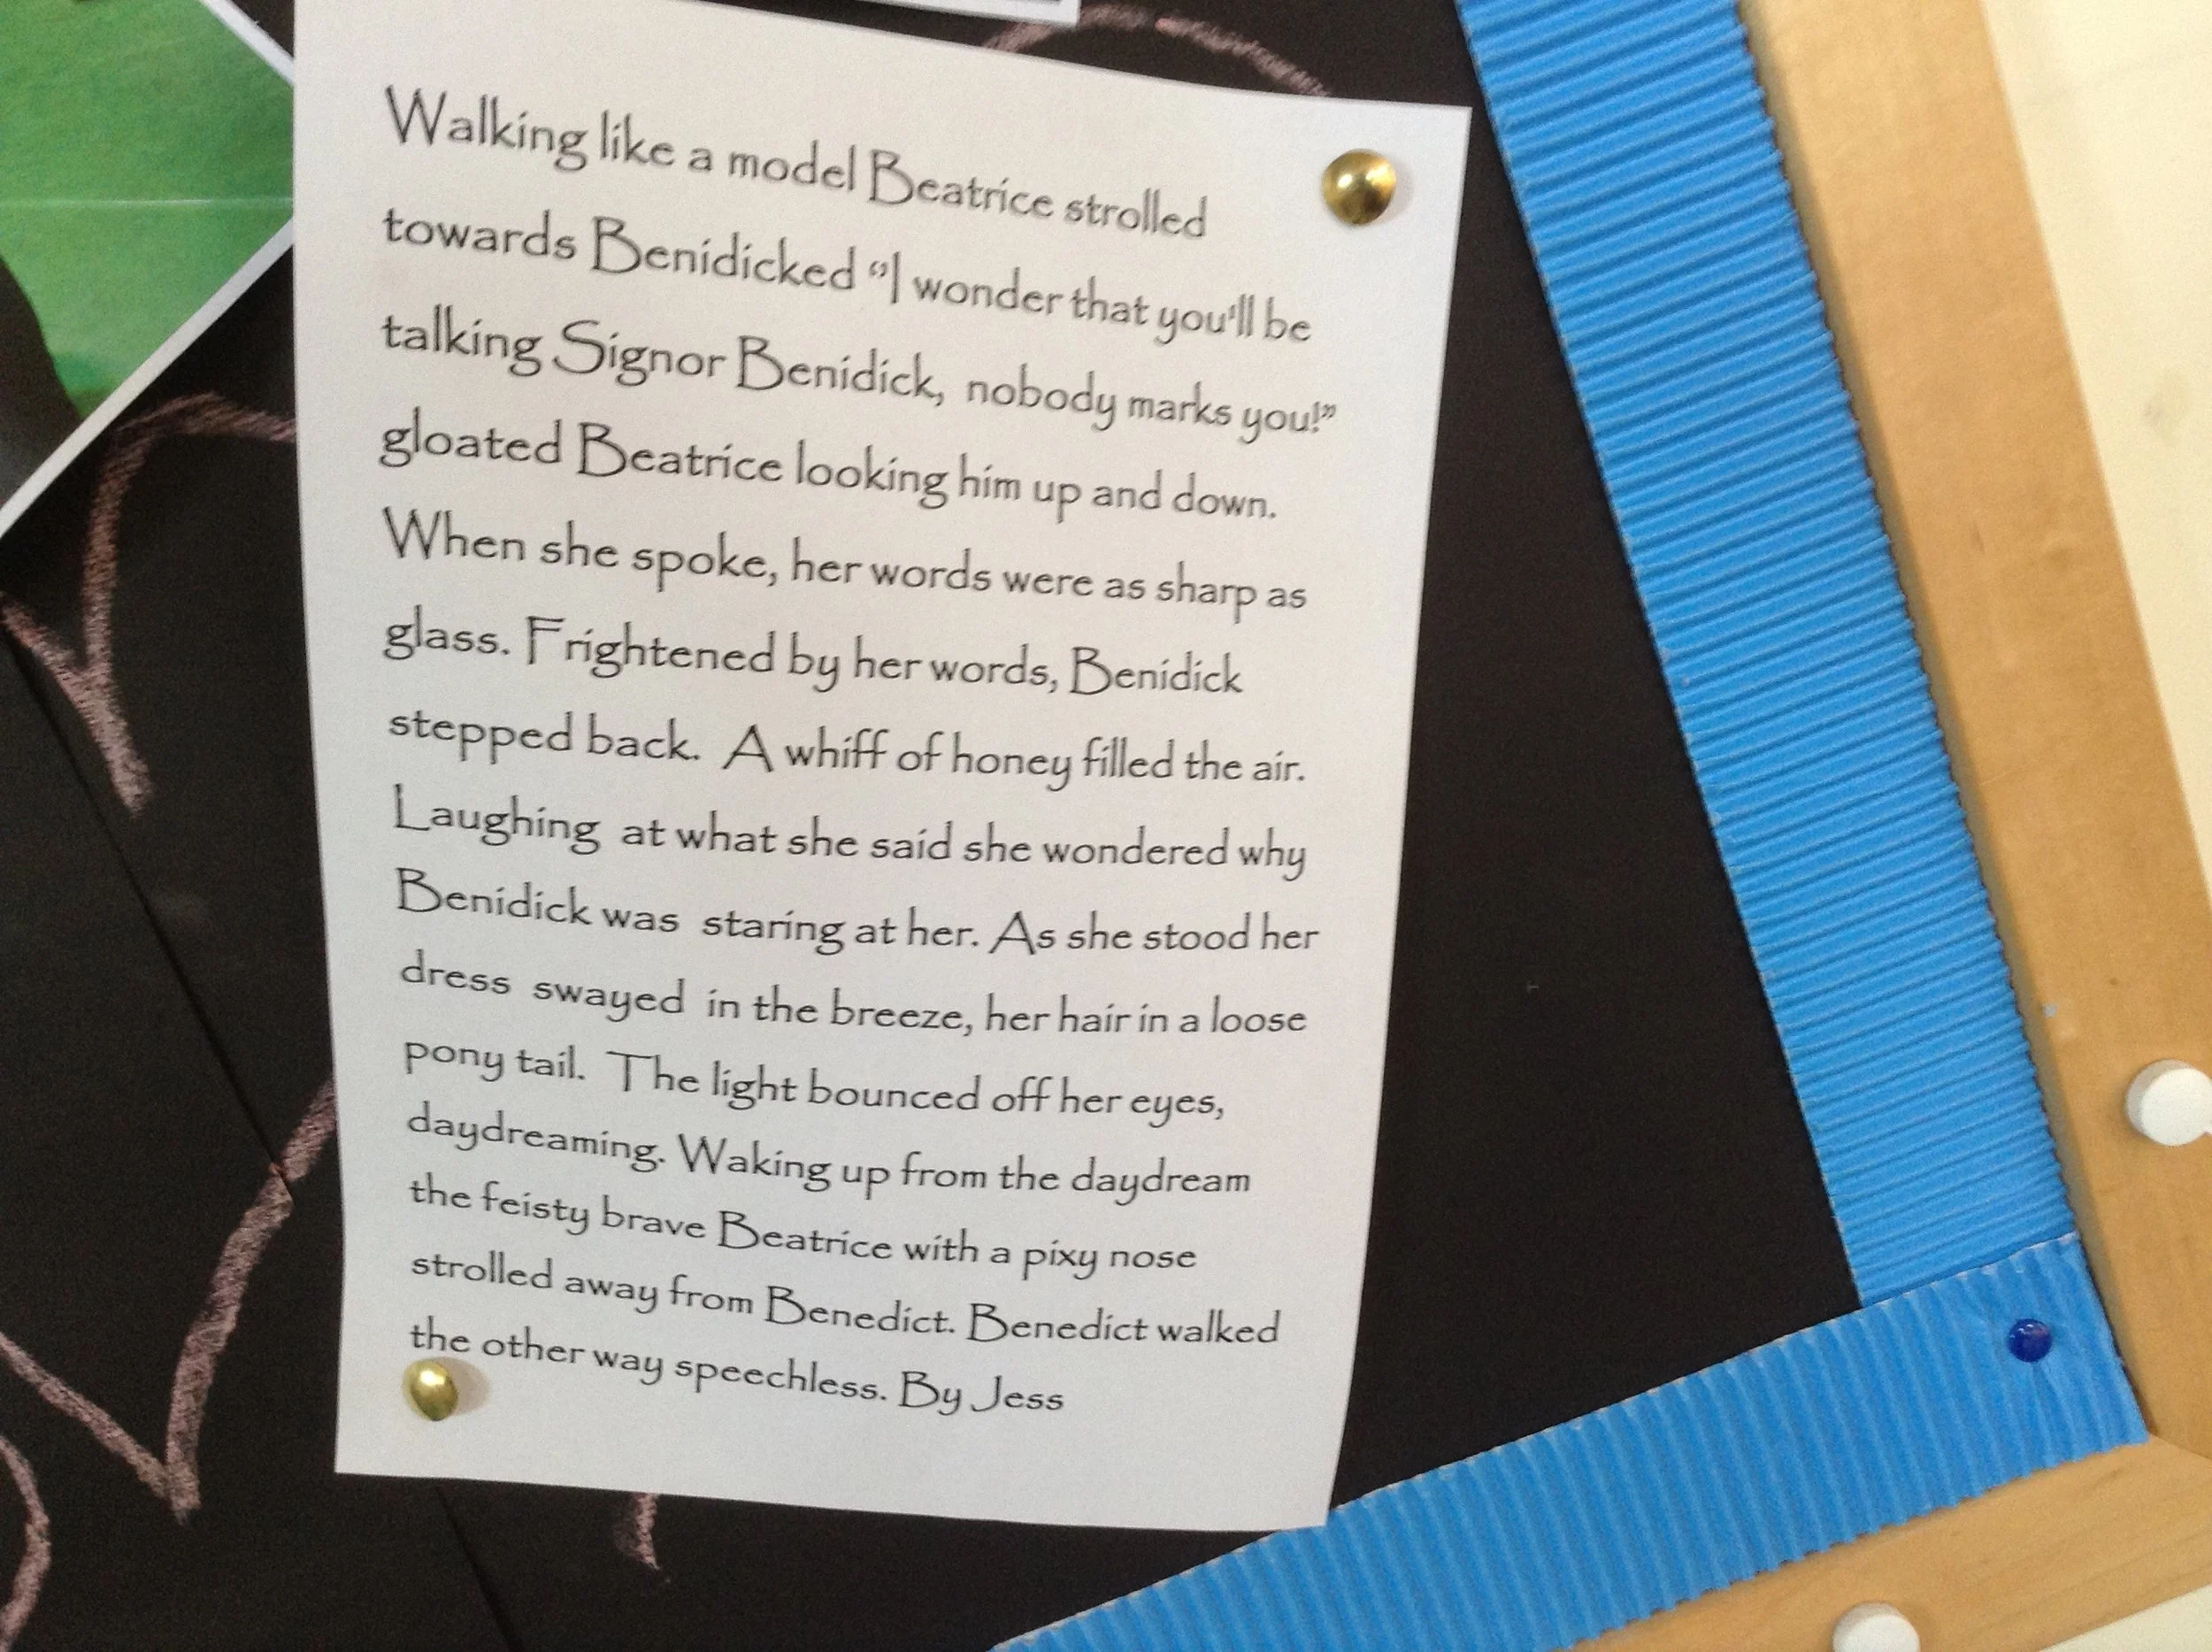 Walking like a model Beatrice strolled
towards Benidicked “I wonder that you'll be
talking Signor Benidick, nobody marks you!”
gloated Beatrice looking him up and down.
When she spoke, her words were as sharp as
glass. Frightened by her words, Benidick
stepped back. A whiff of honey filled the air.
Laughing at what she said she wondered why
Benidick was staring at her. As she stood her
dress swayed in the breeze, her hair in a loose
pony tail. The light bounced off her eyes,
daydreaming. Waking up from the daydream
the feisty brave Beatrice with a pixy nose
strolled away from Benedict. Benedict walked
the other way speechless. By Jess